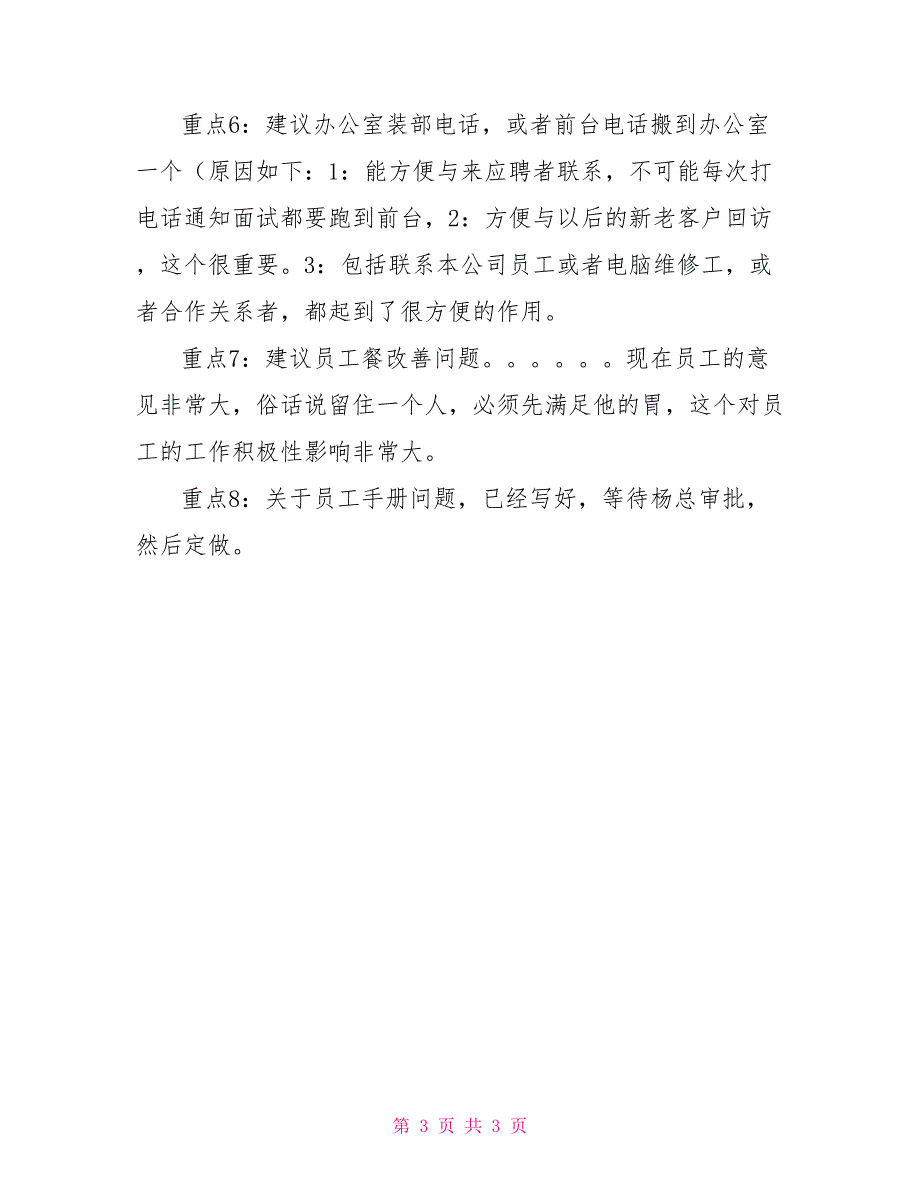 重点6：建议办公室装部电话，或者前台电话搬到办公室
一个（原因如下：1：能方便与来应聘者联系，不可能每次打
电话通知面试都要跑到前台，2：方便与以后的新老客户回访
，这个很重要。3：包括联系本公司员工或者电脑维修工，或
者合作关系者，都起到了很方便的作用。
重点7：建议员工餐改善问题。。。。。。现在员工的意
见非常大，俗话说留住一个人，必须先满足他的胃，这个对员
工的工作积极性影响非常大。
重点8：关于员工手册问题，已经写好，等待杨总审批，
然后定做。
第 3 页 共 3 页